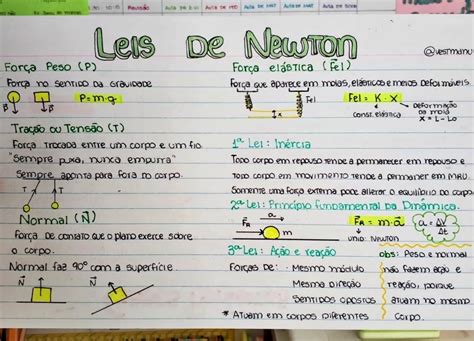 Revisão
Leis de Newton
@vestmanu
Força Peso (P)
Força no sentido da gravidade
P
P
P = m·g
Tração ou Tensão (T)
Força trocada entre um corpo e um fio.
"Sempre puxa, nunca empurra"
Sempre aponta para fora do corpo.
T
T
Normal (N)
Força de contato que o plano exerce sobre
o corpo.
Normal faz 90° com a superfície.
N
N
Força elástica (Fel)
Força que aparece em molas, elásticos e meios deformáveis
Fel
x
Fel = K · X
const. elástica
Deformação
da mola
X = L - Lo
1ª Lei: Inércia
Todo corpo em repouso tende a permanecer em repouso e
todo corpo em movimento tende a permanecer em MRU.
Somente uma força externa pode alterar o equilíbrio do corpo
2ª Lei: Princípio fundamental da Dinâmica.
a
FR
m
FR = m·a
unid: Newton
a = ΔV
Δt
3ª Lei: Ação e reação
Forças de: Mesmo módulo
Mesma direção
Sentidos opostos
* Atuam em corpos diferentes
obs: Peso e normal
não fazem ação e
reação, porque
atuam no mesmo
corpo.